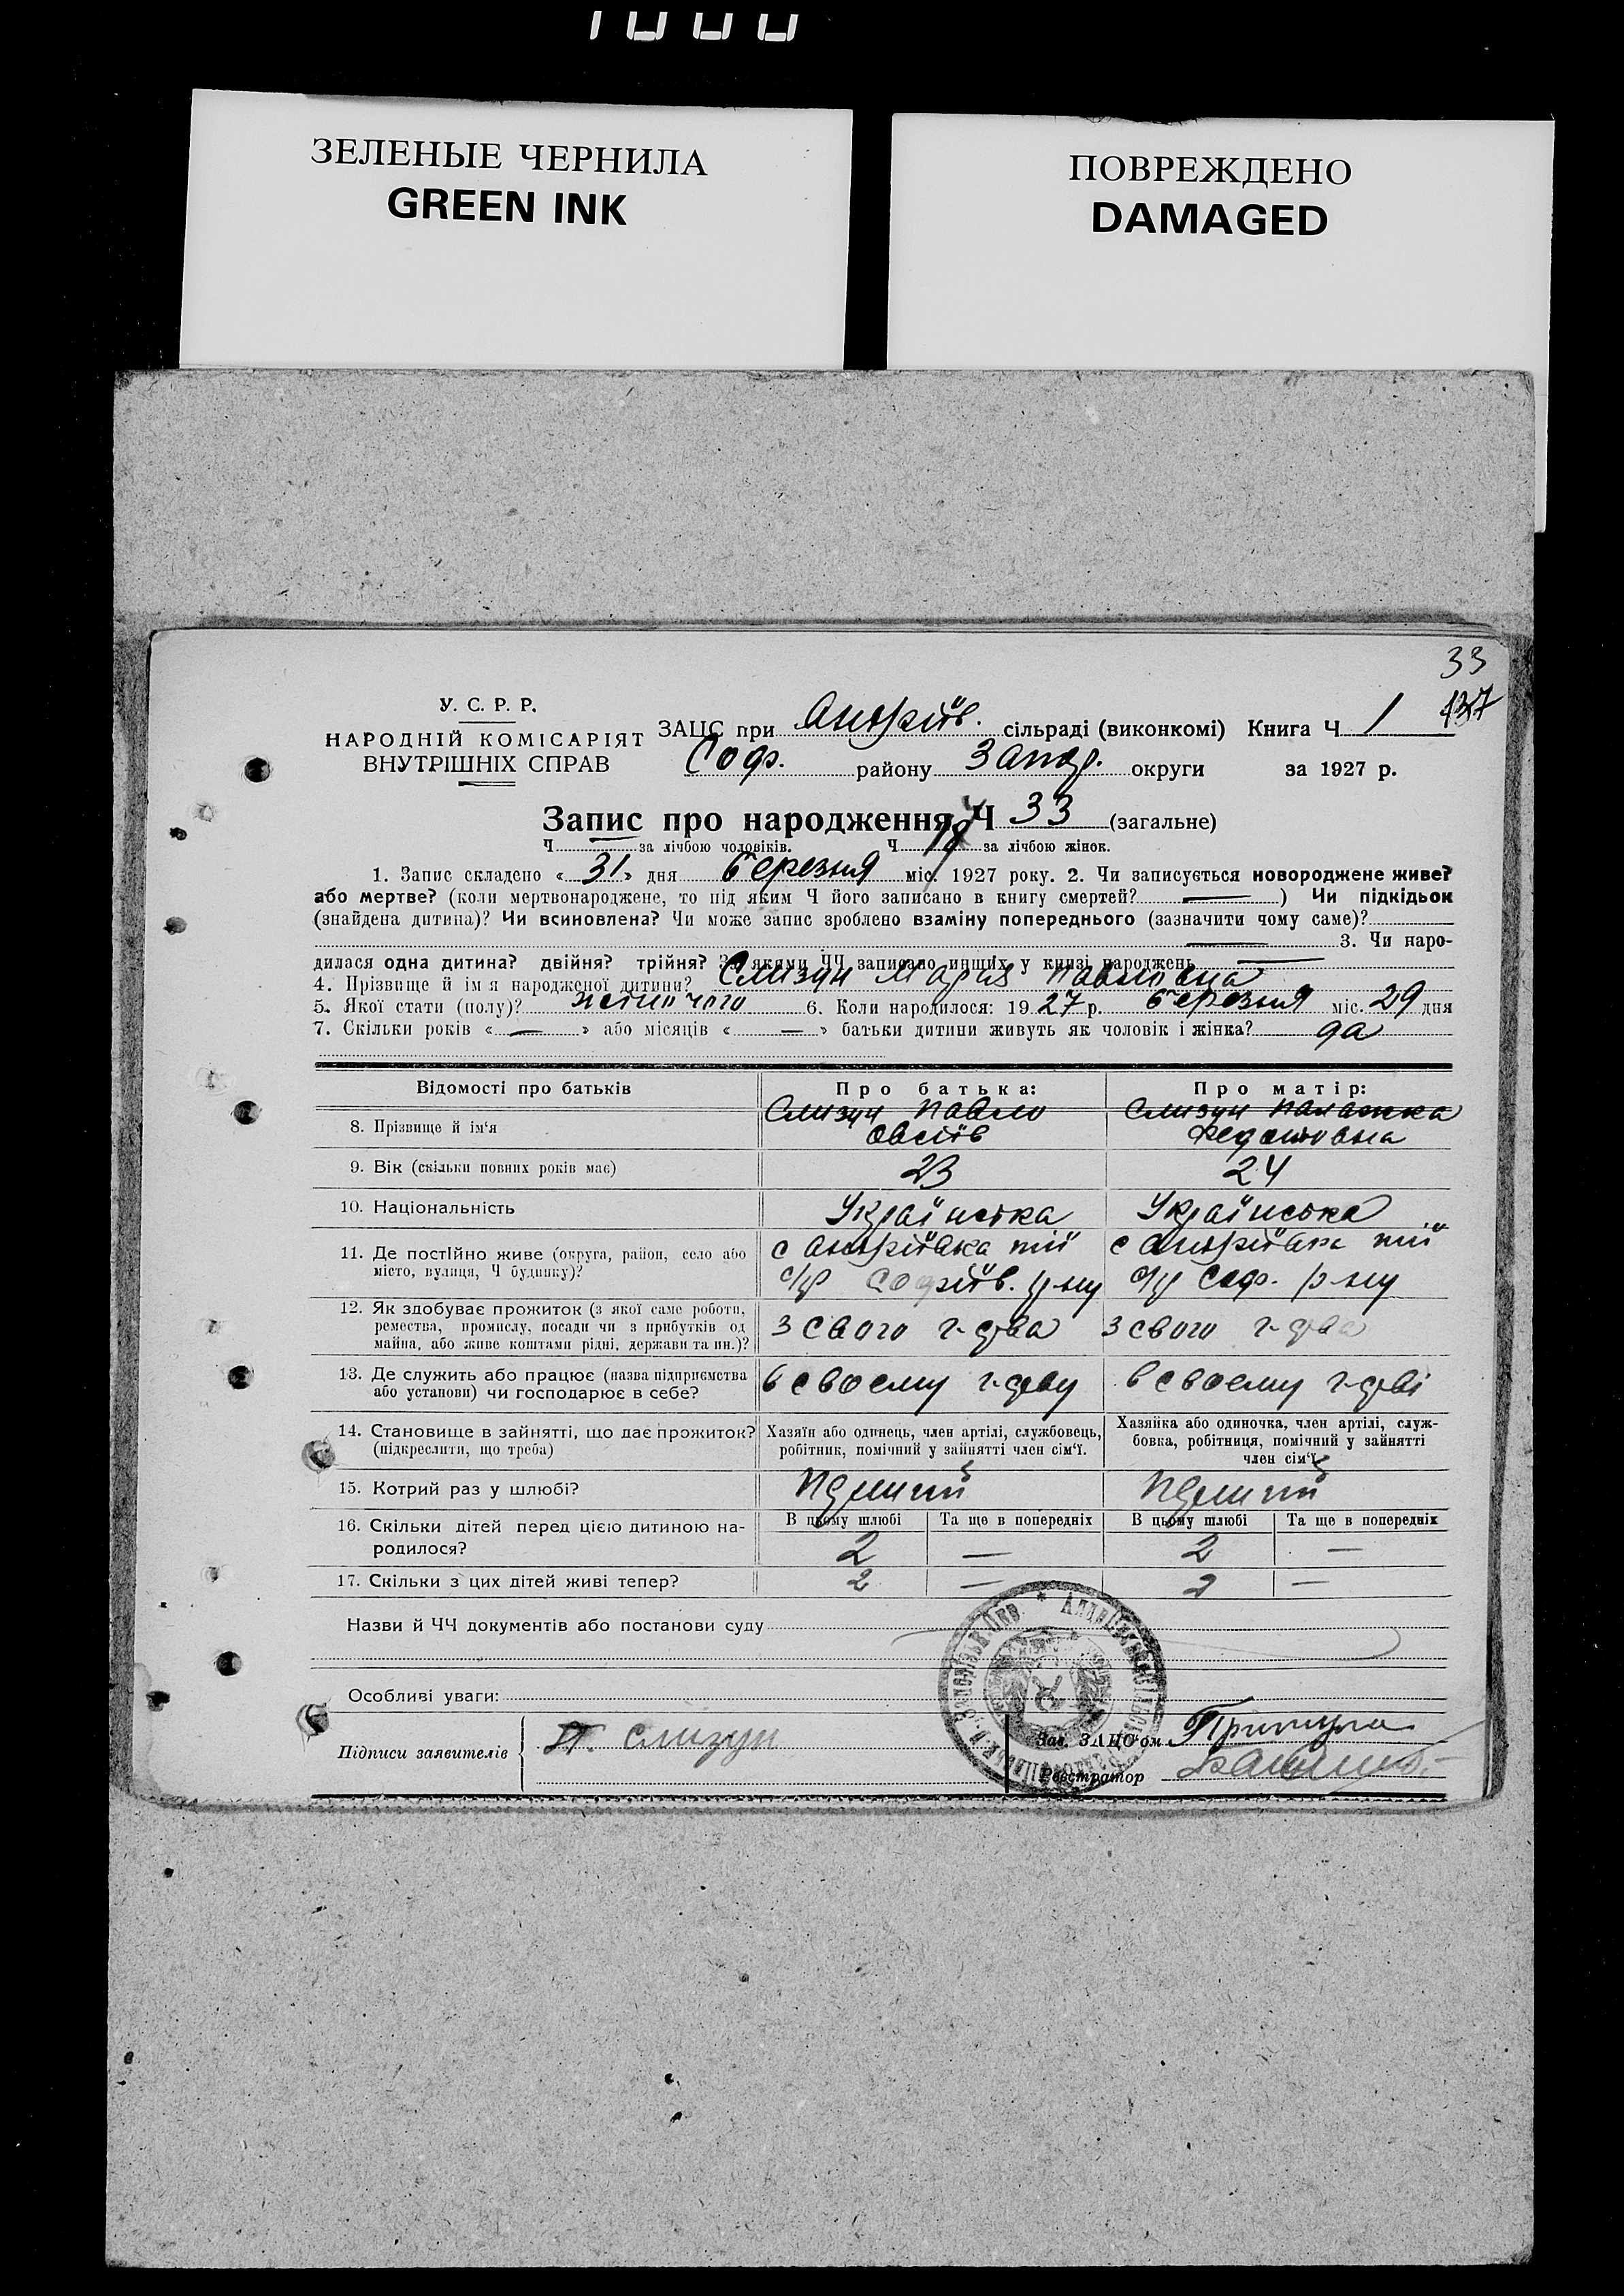 ЗЕЛЕНЫЕ ЧЕРНИЛА
GREEN INK
ПОВРЕЖДЕНО
DAMAGED
33
137
У. С. Р. Р.
НАРОДНІЙ КОМІСАРІЯТ
ВНУТРІШНІХ СПРАВ
ЗАЦС при Андріїв. сільраді (виконкомі) Книга Ч 1
Соф. району Запор. округи за 1927 р.
Запис про народження Ч 33 (загальне)
Ч за лічбою чоловіків. Ч 18 за лічбою жінок.
1. Запис складено « 31 » дня березня міс. 1927 року. 2. Чи записується новороджене живе?
або мертве? (коли мертвонароджене, то під яким Ч його записано в книгу смертей? — ) Чи підкідьок
(знайдена дитина)? Чи всиновлена? Чи може запис зроблено взаміну попереднього (зазначити чому саме)?
— 3. Чи наро-
дилася одна дитина? двійня? трійня? За якими ЧЧ записано инших у книзі народжень —
4. Прізвище й ім'я народженої дитини? Слизун Марія Павловна
5. Якої стати (полу)? жіночого 6. Коли народилося: 19 27 р. березня міс. 29 дня
7. Скільки років « — » або місяців « — » батьки дитини живуть як чоловік і жінка? да
Відомості про батьків Про батька: Про матір:
8. Прізвище й ім'я Слизун Павло Слизун Палажка
Овсіїв Федотовна
9. Вік (скільки повних років має) 23 24
10. Національність Українська Українська
11. Де постійно живе (округа, район, село або с Андріївка тії с Андріївка тії
місто, вулиця, Ч будинку)? с/р Софіїв. р-ну с/р Соф. р-ну
12. Як здобуває прожиток (з якої саме роботи,
ремества, промислу, посади чи з прибутків од з свого г-дтва з свого г-дтва
майна, або живе коштами рідні, держави та ин.)?
13. Де служить або працює (назва підприємства в своему г-дтву в своему г-дтві
або установи) чи господарює в себе?
14. Становище в зайнятті, що дає прожиток? Хазяїн або одинець, член артілі, службовець, Хазяйка або одиночка, член артілі, служ-
(підкреслити, що треба) робітник, помічний у зайнятті член сім'ї. бовка, робітниця, помічний у зайнятті
член сім'ї
15. Котрий раз у шлюбі?
16. Скільки дітей перед цією дитиною на- В цьому шлюбі Та ще в попередніх В цьому шлюбі Та ще в попередніх
родилося? 2 — 2 —
17. Скільки з цих дітей живі тепер? 2 — 2 —
Назви й ЧЧ документів або постанови суду
Особливі уваги:
Підписи заявителів П. Слизун
Зав. ЗАЦС'ом Притула
Реєстратор